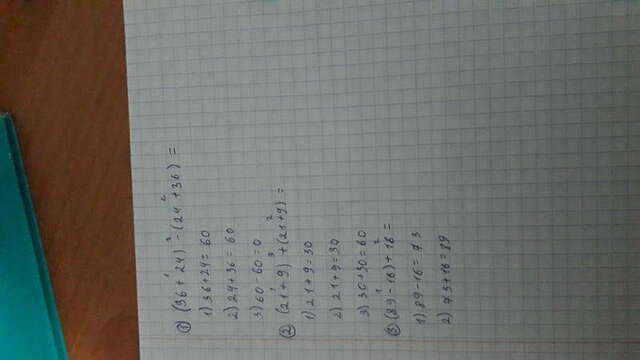 ① (36 + 24) - (24 + 36) =
1) 36+24= 60
2) 24+36= 60
3) 60-60=0
② (21+9) + (21+9) =
1) 21+9=30
2) 21+9=30
3) 30+30=60
③ (89-16) + 16 =
1) 89-16= 73
2) 73+16=89